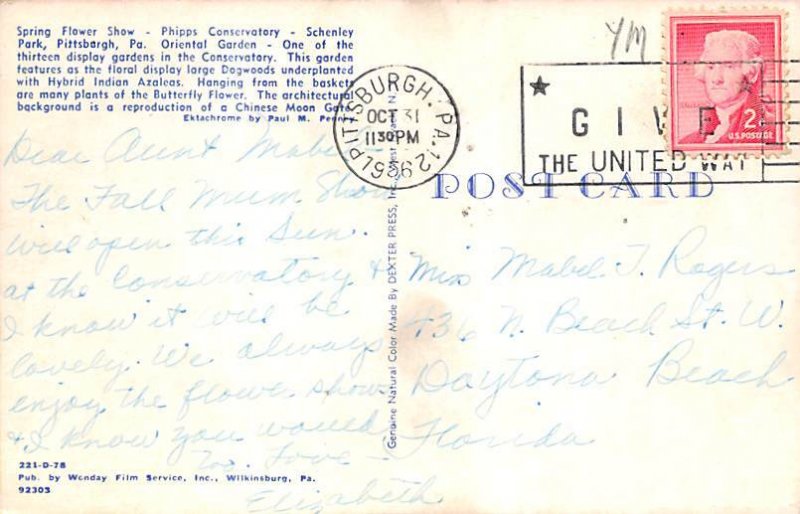 Spring Flower Show - Phipps Conservatory - Schenley
Park, Pittsbargh, Pa. Oriental Garden - One of the
thirteen display gardens in the Conservatory. This garden
features as the floral display large Dogwoods underplanted
with Hybrid Indian Azaleas. Hanging from the baskets
are many plants of the Butterfly Flower. The architectural
background is a reproduction of a Chinese Moon Gate.
Ektachrome by Paul M. Penny
Dear Aunt Mabel -
The Fall Mum Show
will open this Sun.
at the Conservatory &
I know it will be
lovely. We always
enjoy the flower show
& I know you would
too. Love -
Elizabeth
221-D-78
Pub. by Wenday Film Service, Inc., Wilkinsburg, Pa.
92303
Genuine Natural Color Made By DEXTER PRESS, INC., West N
PITTSBURGH, PA. 12
OCT 31
1130PM
1962
YM
GIVE
THE UNITED WAY
2¢
U.S. POSTAGE
POST CARD
Miss Mabel T. Rogers
436 N. Beach St. W.
Daytona Beach
Florida